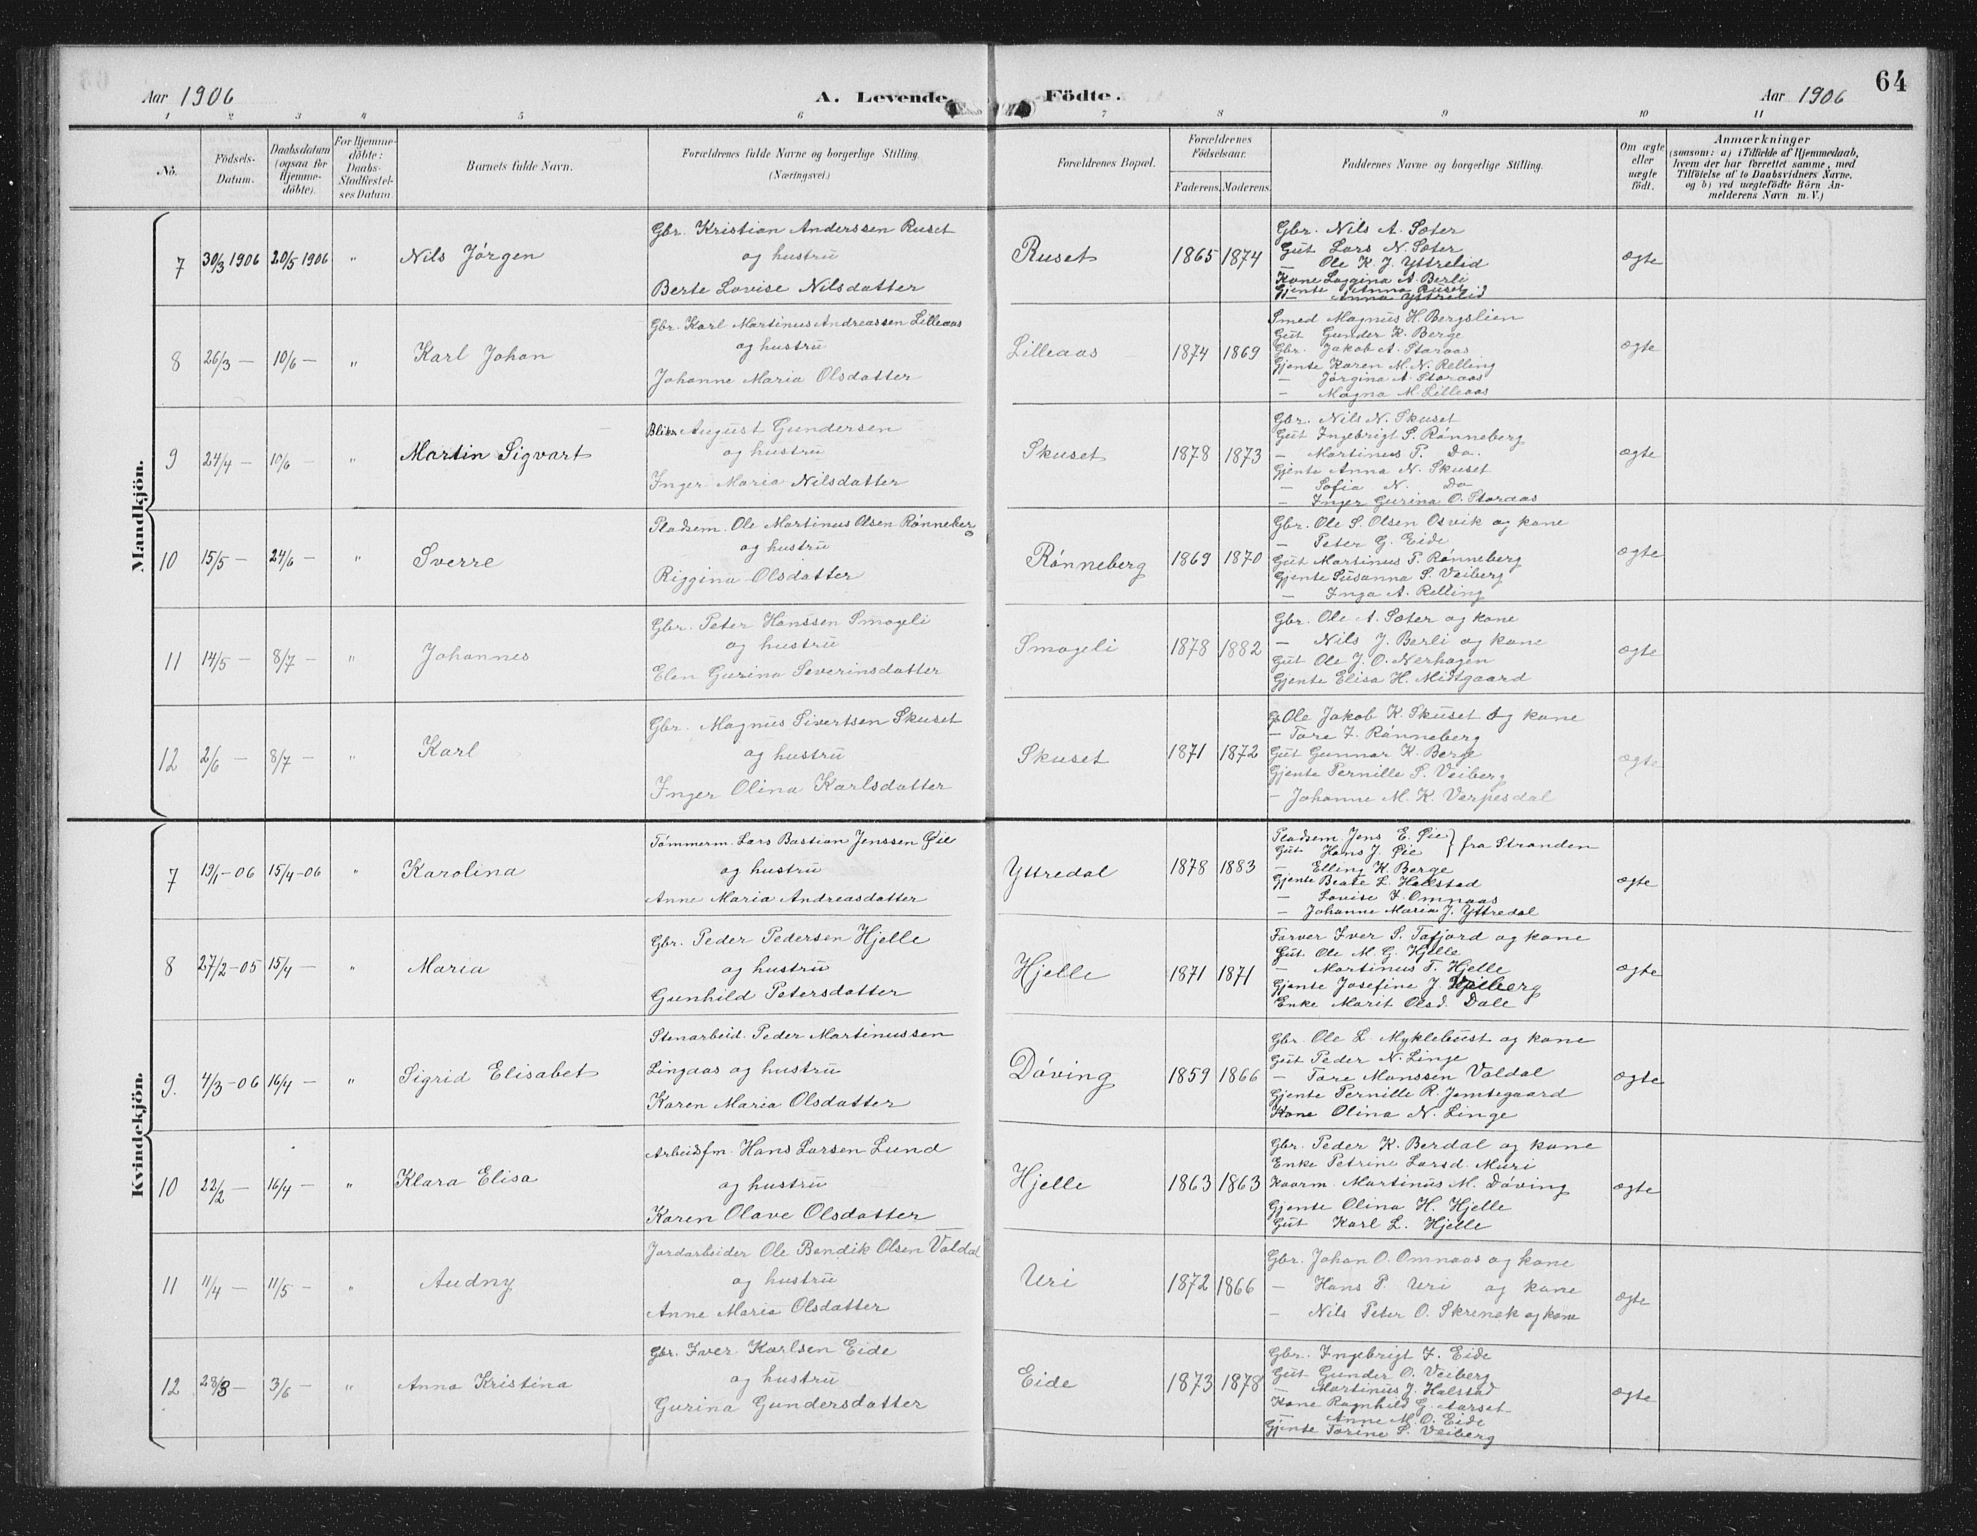 64
Aar 1906 A. Levende Födte. Aar 1906
1 2 3 4 5 6 7 8 9 10 11
No.
Födsels-Datum.
Daabsdatum (ogsaa for Hjemme-döbte).
For Hjemme-döbte: Daabs-Stadfæstel-ses Datum
Barnets fulde Navn.
Forældrenes fulde Navne og borgerlige Stilling. (Næringsvei.)
Forældrenes Bopæl.
Forældrenes Födselsaar.
Faderens. Moderens.
Faddernes Navne og borgerlige Stilling.
Om ægte eller uægte födt.
Anmærkninger
(saasom: a) i Tilfælde af Hjemmedaab, hvem der har forrettet samme, med Tilföielse af to Daabsvidners Navne, og b) ved uægtefödte Börn An-melderens Navn m. V.)
Mandkjön.
7 30/3 1906 20/5 1906 " Nils Jørgen
Gbr. Kristian Anderssen Ruset
og hustru
Berte Lovise Nilsdatter
Ruset 1865 1874
Gbr. Nils A. Sæter
Gut Lars N. Sæter
— Ole K. J. Yttrelid
Kone Laggina A. Berli
Gjente Anna Ruset
— Anna Yttrelid
ægte
8 26/3 — 10/6 — " Karl Johan
Gbr. Karl Martinus Andreassen Lilleaas
og hustru
Johanne Maria Olsdatter
Lilleaas 1874 1869
Smed Magnus H. Bergslien
Gut Gunder K. Berge
Gbr. Jakob A. Storaas
Gjente Karen M. N. Relling
— Jørgina A. Storaas
— Magna M. Lilleaas
ægte
9 24/4 — 10/6 — " Martin Sigvart
Blikn August Gundersen
og hustru
Inger Maria Nilsdatter
Skuset 1878 1873
Gbr. Nils N. Skuset
Gut Ingebrigt S. Rønneberg
— Martinus P. Do.
Gjente Anna N. Skuset
— Sofia N. Do
— Inger Gurina O. Storaas
ægte
10 15/5 — 24/6 — " Sverre
Pladsem. Ole Martinus Olsen Rønneberg
og hustru
Riggina Olsdatter
Rønneberg 1869 1870
Gbr. Ole S. Olsen Osvik og kone
— Peter G. Eide
Gut Martinus P. Rønneberg
Gjente Susanna S. Veiberg
— Inga A. Relling
ægte
11 14/5 — 8/7 — " Johannes
Gbr. Peter Hanssen Smogeli
og hustru
Elen Gurina Severinsdatter
Smogeli 1878 1882
Gbr. Ole A. Sæter og kone
— Nils J. Berli og kone
Gut Ole J. O. Nerhagen
Gjente Elisa H. Midtgaard
ægte
12 2/6 — 8/7 — " Karl
Gbr. Magnus Sivertsen Skuset
og hustru
Inger Olina Karlsdatter
Skuset 1871 1872
Ole Jakob K. Skuset og kone
— Tore I. Rønneberg
Gut Gunnar K. Berge
Gjente Pernille S. Veiberg
— Johanne M. K. Verpesdal
ægte
Kvindekjön.
7 19/1-06 15/4-06 " Karolina
Tømmerm. Lars Bastian Jenssen Øie
og hustru
Anne Maria Andreasdatter
Yttredal 1878 1883
Pladsem. Jens E. Øie
Gut Hans J. Øie } fra Stranden
— Elling K. Berge
Gjente Beate L. Halstad
— Lovise I. Omnaas
— Johanne Maria J. Yttredal
ægte
8 27/2-05 15/4 — " Maria
Gbr. Peder Pedersen Hjelle
og hustru
Gunhild Petersdatter
Hjelle 1871 1871
Farver Iver S. Tafjord og kone
Gut. Ole M. G. Hjelle
— Martinus T. Hjelle
Gjente Josefine J.
Enke Marit Olsd. Dale
ægte
9. 4/3-06 16/4 — " Sigrid Elisabet
Stenarbeid. Peder Martinussen
Lingaas og hustru
Karen Maria Olsdatter
Døving 1859 1866
Gbr. Ole L. Myklebust og kone
Gut Peder N. Linge
— Tore Monssen Valdal
Gjente Pernille R. Jemtegaard
Kone Olina N. Linge
ægte
10 22/2 — 16/4 — " Klara Elisa
Arbeidsfm. Hans Larsen Lund
og hustru
Karen Olave Olsdatter
Hjelle 1863 1863
Gbr. Peder K. Berdal og kone
Enke Petrine Larsd. Muri
Kaarm. Martinus M. Døving
Gjente Olina H. Hjelle
Gut Karl L. Hjelle
ægte
11 11/4 — 11/5 — " Audny
Jordarbeider Ole Bendik Olsen Valdal
og hustru
Anne Maria Olsdatter
Uri 1872 1866
Gbr. Johan O. Omnaas og kone
— Hans P. Uri og kone
— Nils Peter O. Skrenak og kone
ægte
12 28/3 — 3/6 — " Anna Kristina
Gbr. Iver Karlsen Eide
og hustru
Gurina Gundersdatter
Eide 1873 1878
Gbr. Ingebrigt I. Eide
Gut Gunder O. Veiberg
— Martinus J. Halstad
Kone Ragnhild G. Aarset
— Anne M. O. Eide
Gjente Torine S. Veiberg
ægte